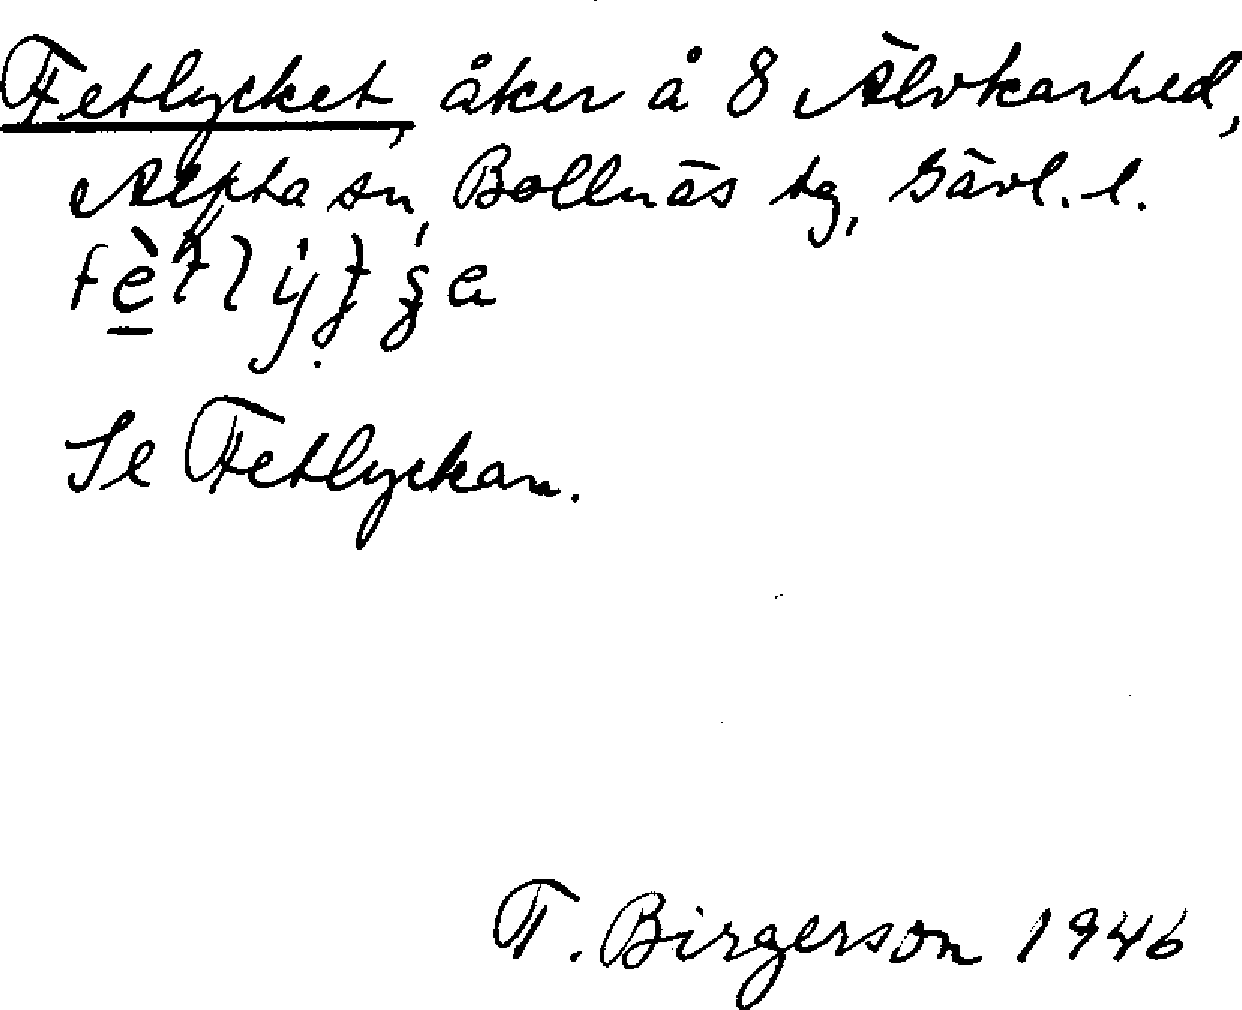 Fetlycket, åker å 8 Älvkarhed,
Alfta sn, Bollnäs tg, Gävl. l.
Se Fetlyckan.
F. Birgerson 1946